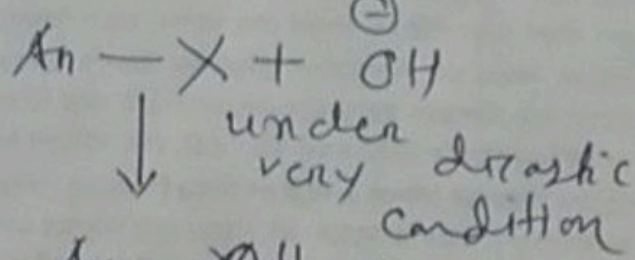 Ar — X + ⊖OH
under
very drastic
condition